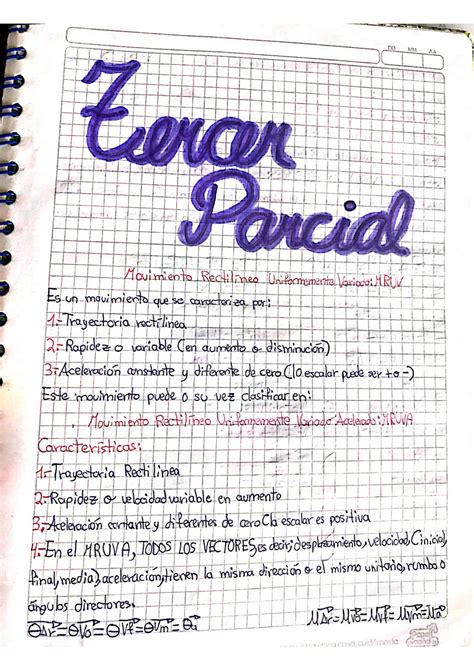 DD MM AA
Tercer
Parcial
Movimiento Rectilíneo Uniformemente Variado: MRUV
Es un movimiento que se caracteriza por:
1.- Trayectoria rectilinea
2.- Rapidez o variable (en aumento o disminución)
3.- Aceleración constante y diferente de cero (lo escalar puede ser + o -)
Este movimiento puede a su vez clasificar en:
. Movimiento Rectilíneo Uniformemente Variado Acelerado: MRUVA
Características:
1.- Trayectoria Rectilinea
2.- Rapidez o velocidad variable en aumento
3.- Aceleración contante y diferentes de cero (la escalar es positiva
4.- En el MRUVA, TODOS LOS VECTORES, es decir, desplazamiento, velocidad, (inicial,
final, media) aceleración, tienen la misma dirección o el mismo unitario, rumbo o
ángulos directores.
θΔr⃗ = θV⃗o = θV⃗f = θV⃗m = θa⃗ μΔr⃗ = μV⃗o = μV⃗f = μV⃗m = μa⃗